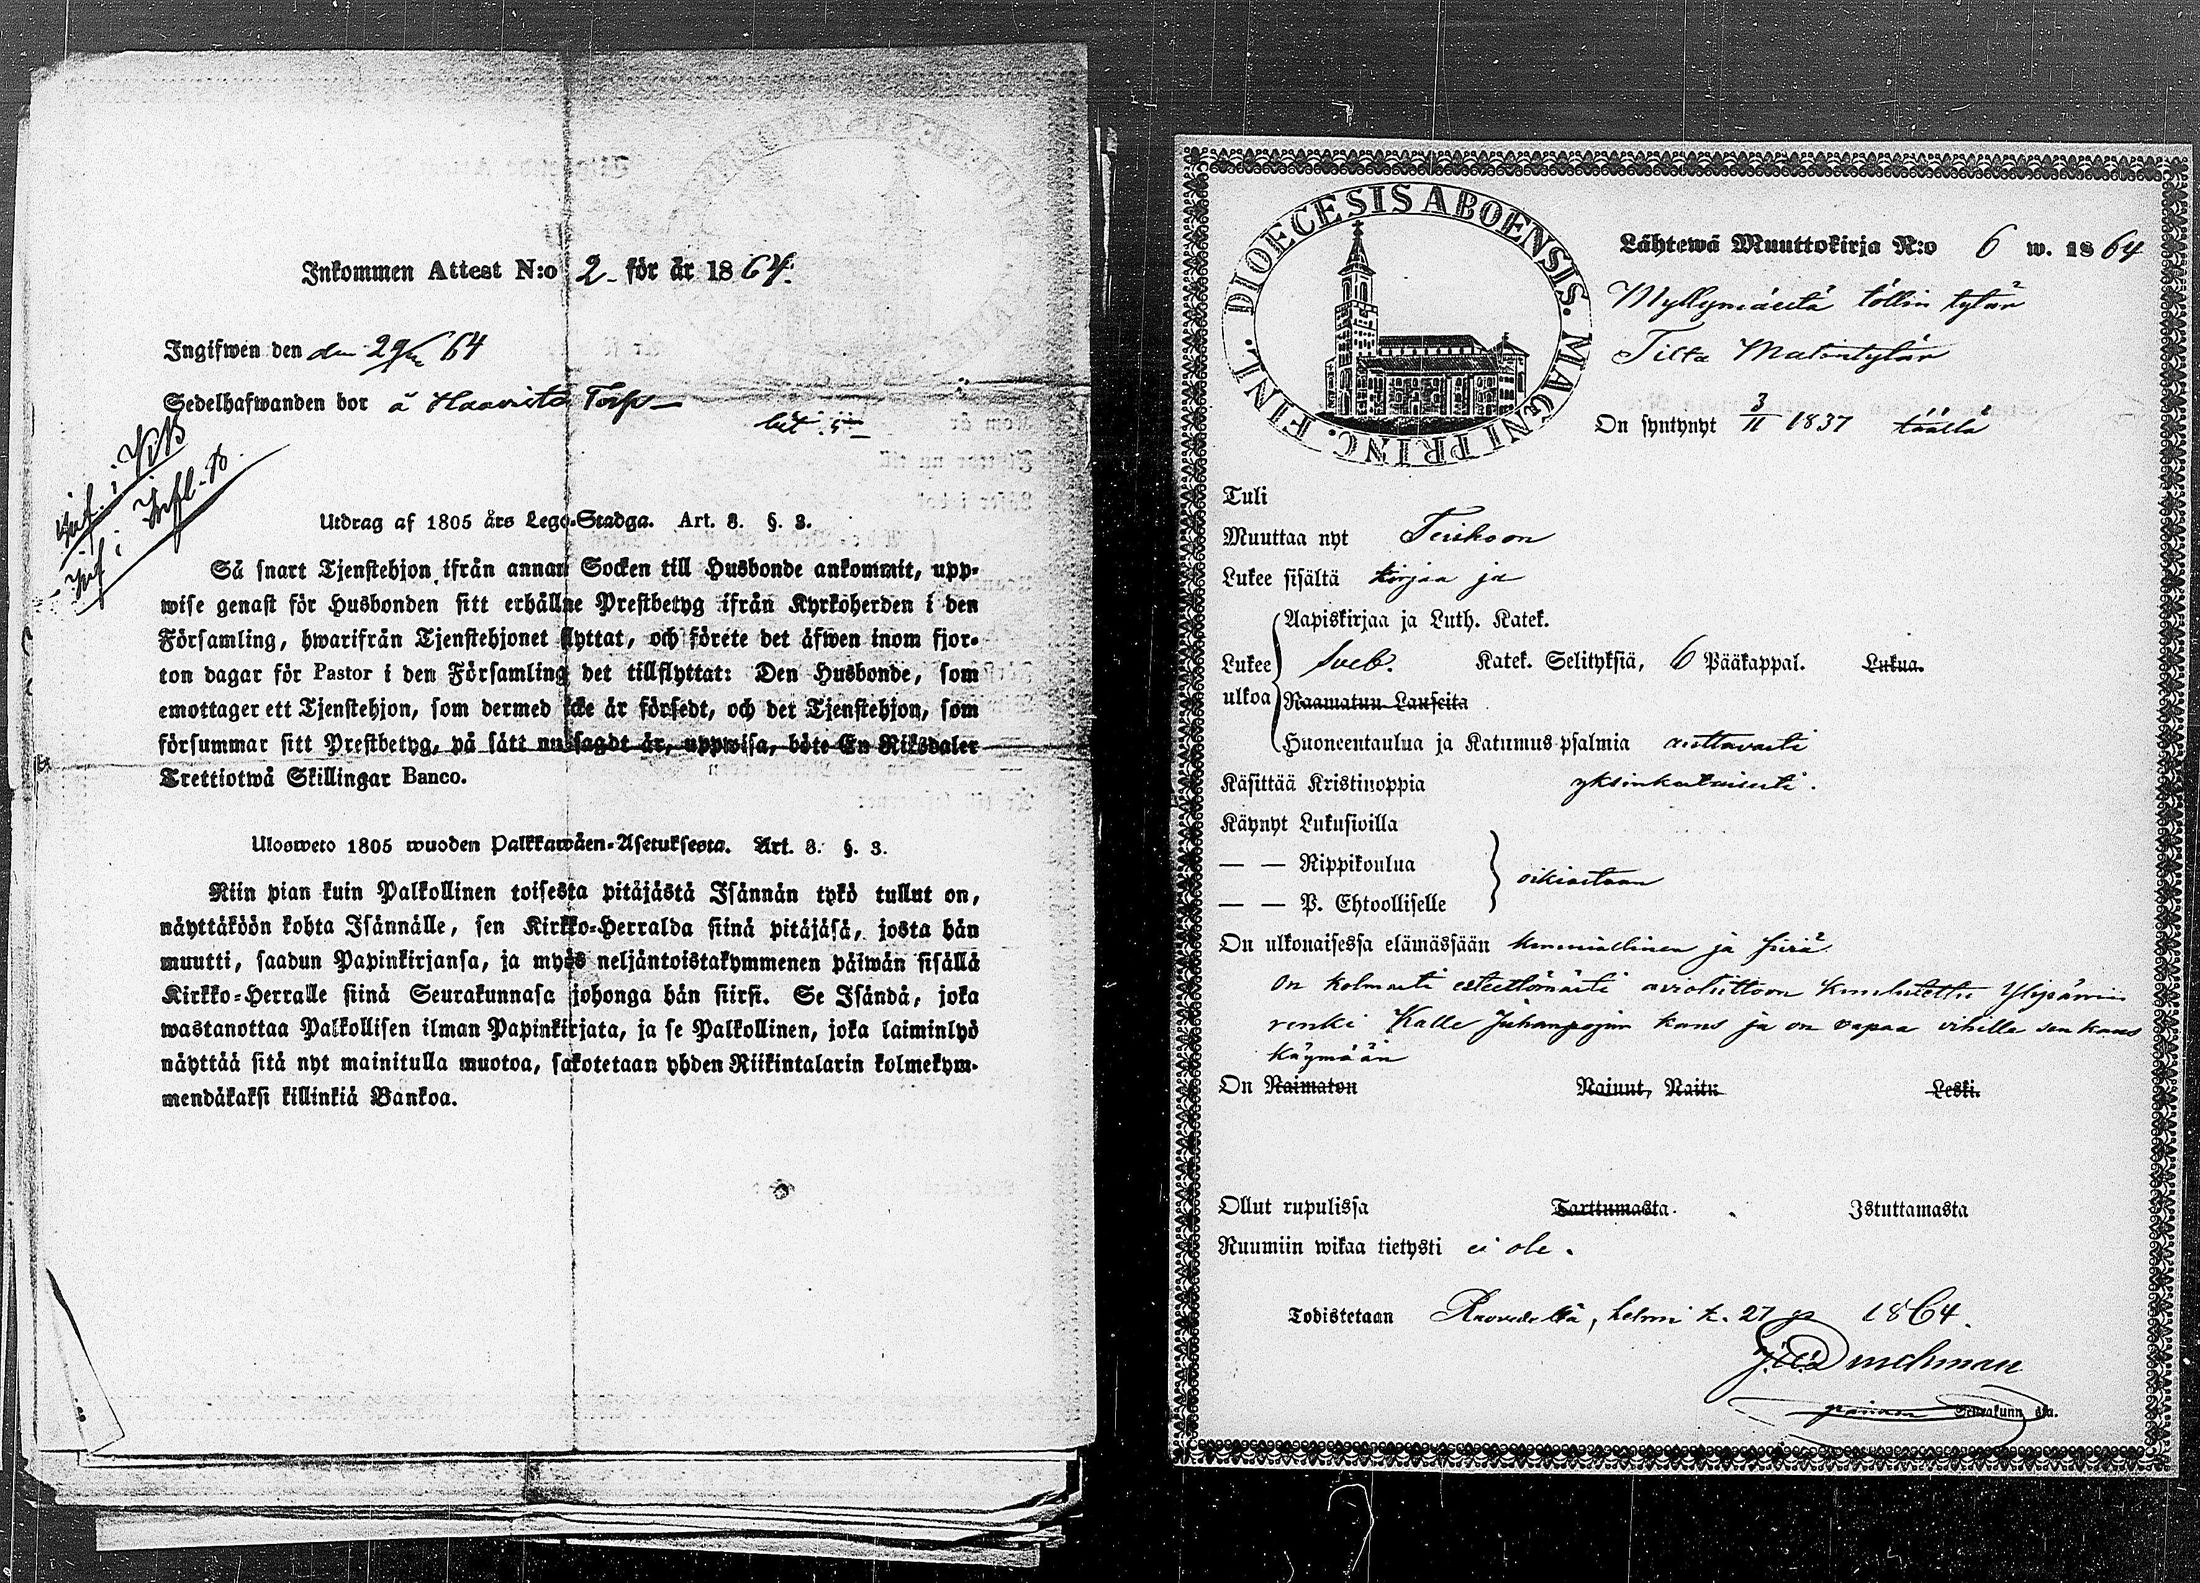 Inkommen Attest N:o 2 för år 1864.
Ingifwen den den 29/2 64
Sedelhafwanden bor å Haavisto Torp
Inf. i KB
Inf i Infl-B.
Utdrag af 1805 års Lego-Stadga. Art. 8. §. 3.
Så snart Tjenstehjon ifrån annan Socken till Husbonde ankommit, upp-
wise genast för Husbonden sitt erhållne Prestbetyg ifrån Kyrkoherden i den
Församling, hwarifrån Tjenstehjonet flyttat, och förete det äfwen inom fjor-
ton dagar för Pastor i den Församling det tillflyttat: Den Husbonde, som
emottager ett Tjenstehjon, som dermed icke är försedt, och det Tjenstehjon, som
försummar sitt Prestbetyg, på sätt nu sagdt är, uppwisa, böte En Riksdaler
Trettiotwå Skillingar Banco.
Ulosweto 1805 wuoden Palkkawäen-Asetuksesta. Art. 8. §. 3.
Niin pian kuin Palkollinen toisesta pitäjästä Isännän tykö tullut on,
näyttäköön kohta Isännälle, sen Kirkko-Herralda siinä pitäjäsä, josta hän
muutti, saadun Papinkirjansa, ja myös neljäntoistakymmenen päiwän sisällä
Kirkko-Herralle siinä Seurakunnasa johonga hän siirsi. Se Isändä, joka
wastanottaa Palkollisen ilman Papinkirjata, ja se Palkollinen, joka laiminlyö
näyttää sitä nyt mainitulla muotoa, sakotetaan yhden Riikintalarin kolmekym-
mendäkaksi killinkiä Bankoa.
DIOECESIS ABOENSIS. MAGNI PRINC. FINL.
Lähtewä Muuttokirja N:o 6 w. 1864
Myllymäeltä töllin tytär
On syntynyt 3/11 1837 täällä
Tuli
Muuttaa nyt
Lukee sisältä kirjaa ja
Aapiskirjaa ja Luth. Katek.
Lukee ulkoa Sveb. Katek. Selityksiä, 6 Pääkappal. Lukua.
Raamatun Lauseita
Huoneentaulua ja Katumus-psalmia auttavasti
Käsittää Kristinoppia yksinkertaisesti.
Käynyt Lukusioilla
— — Rippikoulua oikiastaan
— — P. Ehtoolliselle
On ulkonaisessa elämässään kunniallinen ja siviä
On kolmasti esteettömästi avioliittoon kuulutettu
renki Kalle Juhanpojan kans ja on vapaa vihille sen kans
käymään
On Naimaton Nainut, Naitu Leski.
Ollut rupulissa Tarttumasta. Istuttamasta
Ruumiin wikaa tietysti ei ole.
Todistetaan Ruovedellä, helmi k. 27 p 1864.
Seurakunn ssa.